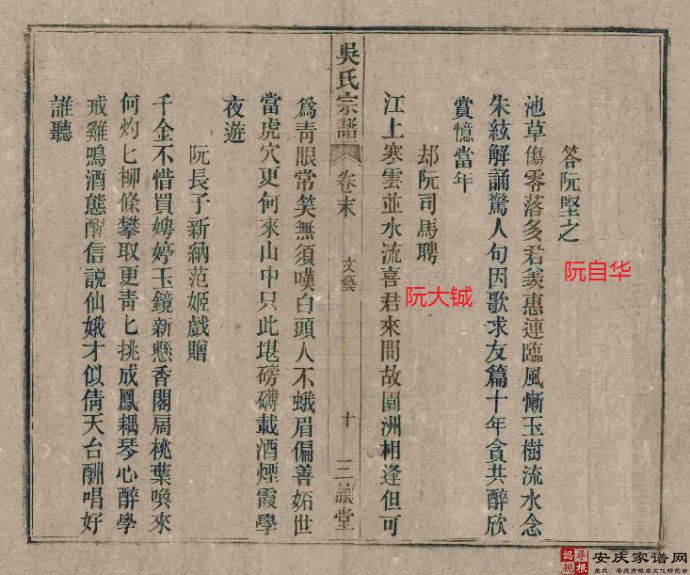 答阮堅之
池草傷零落多君羨惠連臨風慚玉樹流水念
朱絃解誦驚人句因歌求友篇十年貪共醉欣
賞憶當年
却阮司馬聘
江上寒雲並水流喜君來問故園洲相逢但可
吳氏宗譜 卷末 文藝 十 三讓堂
為靑眼常笑無須嘆白頭人不蛾眉偏善妬世
當虎穴更何來山中只此堪磅礴載酒煙霞學
夜遊
阮長子新納范姬戲贈
千金不惜買娉婷玉鏡新懸香閣扃桃葉喚來
何灼匕柳條攀取更靑匕挑成鳳耦琴心醉學
戒雞鳴酒態醒信說仙娥才似倩天台酬唱好
誰聽
阮自华
阮大铖
尋根
認親
安庆家谱网